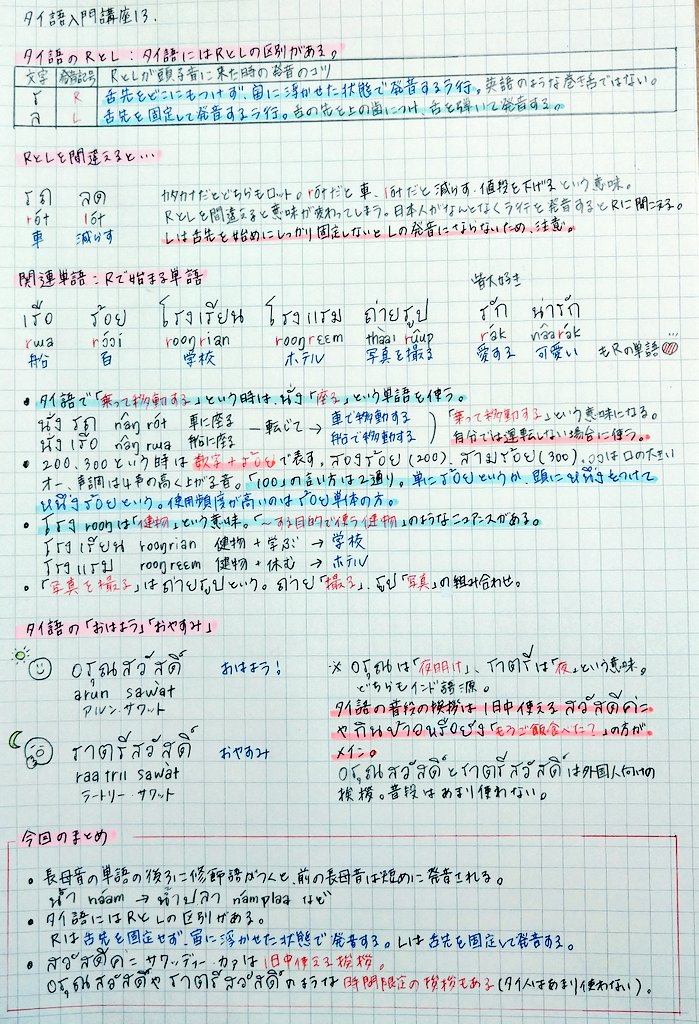 タイ語入門講座13.
タイ語のRとL：タイ語にはRとLの区別がある。
文字 発音記号 RとLが頭子音に来た時の発音のコツ
ร R 舌先をどこにもつけず、宙に浮かせた状態で発音するラ行。英語のような巻き舌ではない。
ล L 舌先を固定して発音するラ行。舌の先を上の歯につけ、舌を弾いて発音する。
RとLを間違えると…
รถ ลด カタカナだとどちらもロット。rótだと車、lótだと減らす、値段を下げるという意味。
rót lót RとLを間違えると意味が変わってしまう。日本人がなんとなくラ行を発音するとRに聞こえる。
車 減らす Lは舌先を始めにしっかり固定しないとLの発音にならないため、注意。
関連単語：Rで始まる単語
皆大好き
เรือ ร้อย โรงเรียน โรงแรม ถ่ายรูป รัก น่ารัก
rɯa rɔ́ɔi rooŋrian rooŋrɛɛm thàai rûup rák nâarák
船 百 学校 ホテル 写真を撮る 愛する 可愛い もRの単語
• タイ語で「乗って移動する」という時は、นั่ง「座る」という単語を使う。
นั่ง รถ nâŋ rót 車に座る 転じて→ 車で移動する 「乗って移動する」という意味になる。
นั่ง เรือ nâŋ rɯa 船に座る 船で移動する 自分では運転しない場合に使う。
• 200、300という時は数字+ร้อยで表す。สองร้อย(200)、สามร้อย(300)、ɔɔは口の大きい
オー、声調は4声の高く上がる音。「100」の言い方は2通り。単にร้อยというか、頭にหนึ่งをつけて
หนึ่งร้อยという。使用頻度が高いのはร้อย単体の方。
• โรง rooŋは「建物」という意味。「～する目的で使う建物」のようなニュアンスがある。
โรงเรียน rooŋrian 建物+学ぶ → 学校
โรงแรม rooŋreem 建物+休む → ホテル
• 「写真を撮る」はถ่ายรูปという。ถ่าย「撮る」、รูป「写真」の組み合わせ。
タイ語の「おはよう」「おやすみ」
อรุณสวัสดิ์ おはよう！ ※ อรุณは「夜明け」、ราตรีは「夜」という意味。
arun sawàt どちらもインド語源。
アルン・サワット タイ語の普段の挨拶は1日中使えるสวัสดีค่ะ
やกินข้าวหรือยัง「もうご飯食べた？」の方が
ราตรีสวัสดิ์ おやすみ メイン。
raatrii sawàt อรุณสวัสดิ์とราตรีสวัสดิ์は外国人向けの
ラートリー・サワット 挨拶。普段はあまり使わない。
今回のまとめ
• 長母音の単語の後ろに修飾語がつくと、前の長母音は短めに発音される。
น้ำ náam → น้ำปลา námplaa など
• タイ語にはRとLの区別がある。
Rは舌先を固定せず、宙に浮かせた状態で発音する。Lは舌先を固定して発音する。
• สวัสดีค่ะ サワッディー・カァは1日中使える挨拶。
อรุณสวัสดิ์やราตรีสวัสดิ์のような時間限定の挨拶もある(タイ人はあまり使わない)。